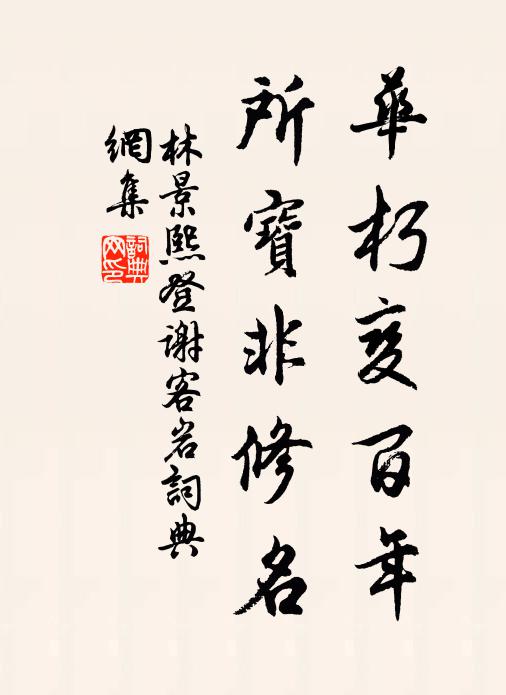 華朽变百年
所寶非修名
林景熙登谢客岩詞典
網集
詞典
网印